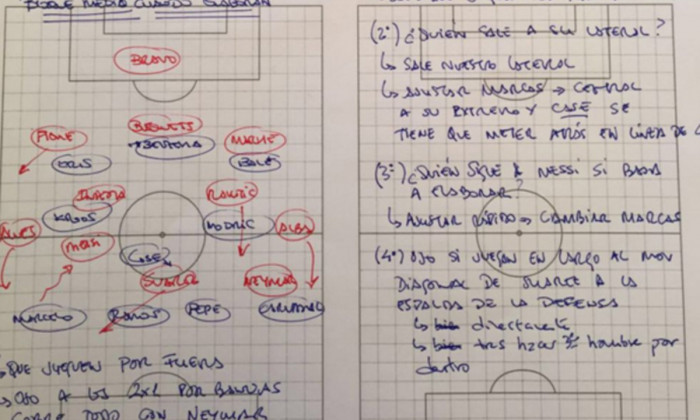 BLOQUE MEDIO CUANDO ELABORAN
BRAVO
PIQUE
BUSQUETS
MASCHE
CRIS
BENZEMA
BALE
INIESTA
RAKITIC
KROOS
MODRIC
ALVES
ALBA
MESSI
CASE
SUAREZ
NEYMAR
MARCELO
RAMOS
PEPE
CARVAJAL
QUE JUEGUEN POR FUERA
→ OJO A LOS 2x1 POR BANDAS
SOBRE TODO CON NEYMAR
(2º) ¿QUIÉN SALE A SU LATERAL?
↳ SALE NUESTRO LATERAL
↳ AJUSTAR MARCAS → CENTRAL
A SU EXTREMO Y CASE SE
TIENE QUE METER ATRÁS EN LÍNEA DE 4
(3º) ¿QUIÉN SIGUE A MESSI SI BAJA
A ELABORAR?
↳ AJUSTAR RÁPIDO → CAMBIAR MARCAS
(4º) OJO SI JUEGAN EN LARGO AL MOV
DIAGONAL DE SUAREZ A LA
ESPALDA DE LA DEFENSA
↳ directamente
↳ tras hacer 3er hombre por
dentro